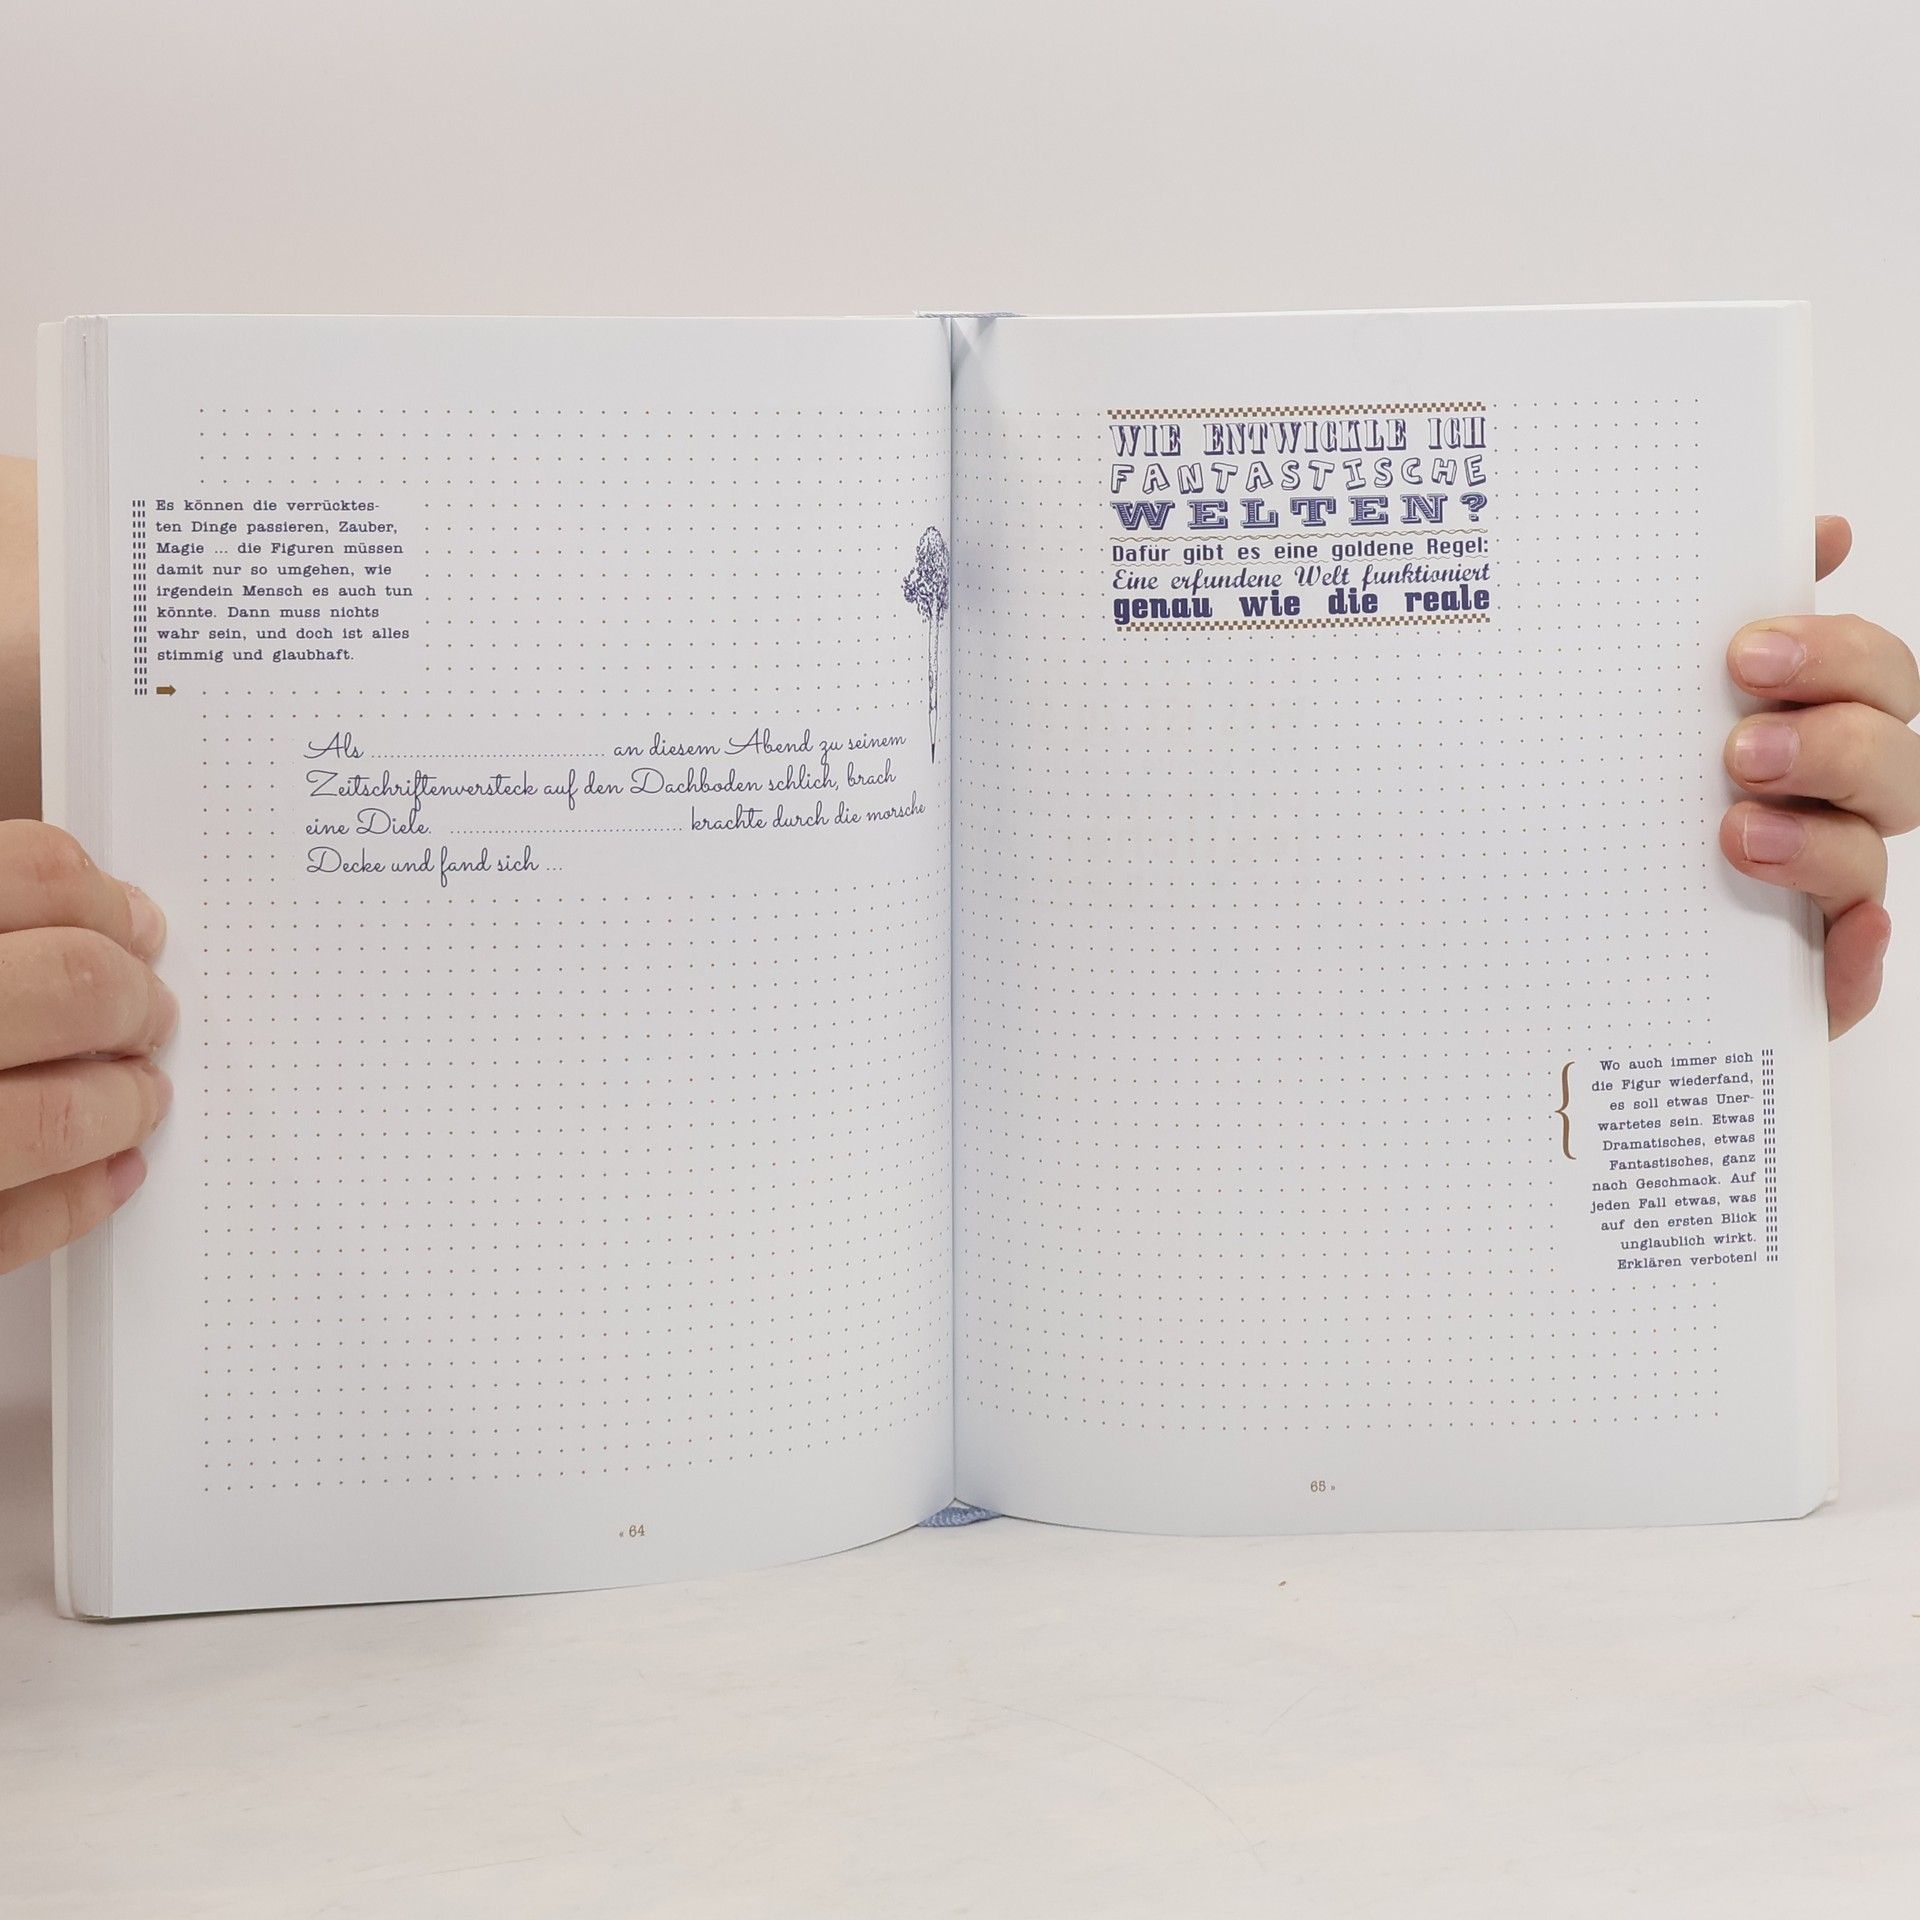 Es können die verrücktes-
ten Dinge passieren, Zauber,
Magie ... die Figuren müssen
damit nur so umgehen, wie
irgendein Mensch es auch tun
könnte. Dann muss nichts
wahr sein, und doch ist alles
stimmig und glaubhaft.
Als ................................ an diesem Abend zu seinem
Zeitschriftenversteck auf den Dachboden schlich, brach
eine Diele. ................................ krachte durch die morsche
Decke und fand sich ...
« 64
WIE ENTWICKLE ICH
FANTASTISCHE
WELTEN?
Dafür gibt es eine goldene Regel:
Eine erfundene Welt funktioniert
genau wie die reale
Wo auch immer sich
die Figur wiederfand,
es soll etwas Uner-
wartetes sein. Etwas
Dramatisches, etwas
Fantastisches, ganz
nach Geschmack. Auf
jeden Fall etwas, was
auf den ersten Blick
unglaublich wirkt.
Erklären verboten!
65 »